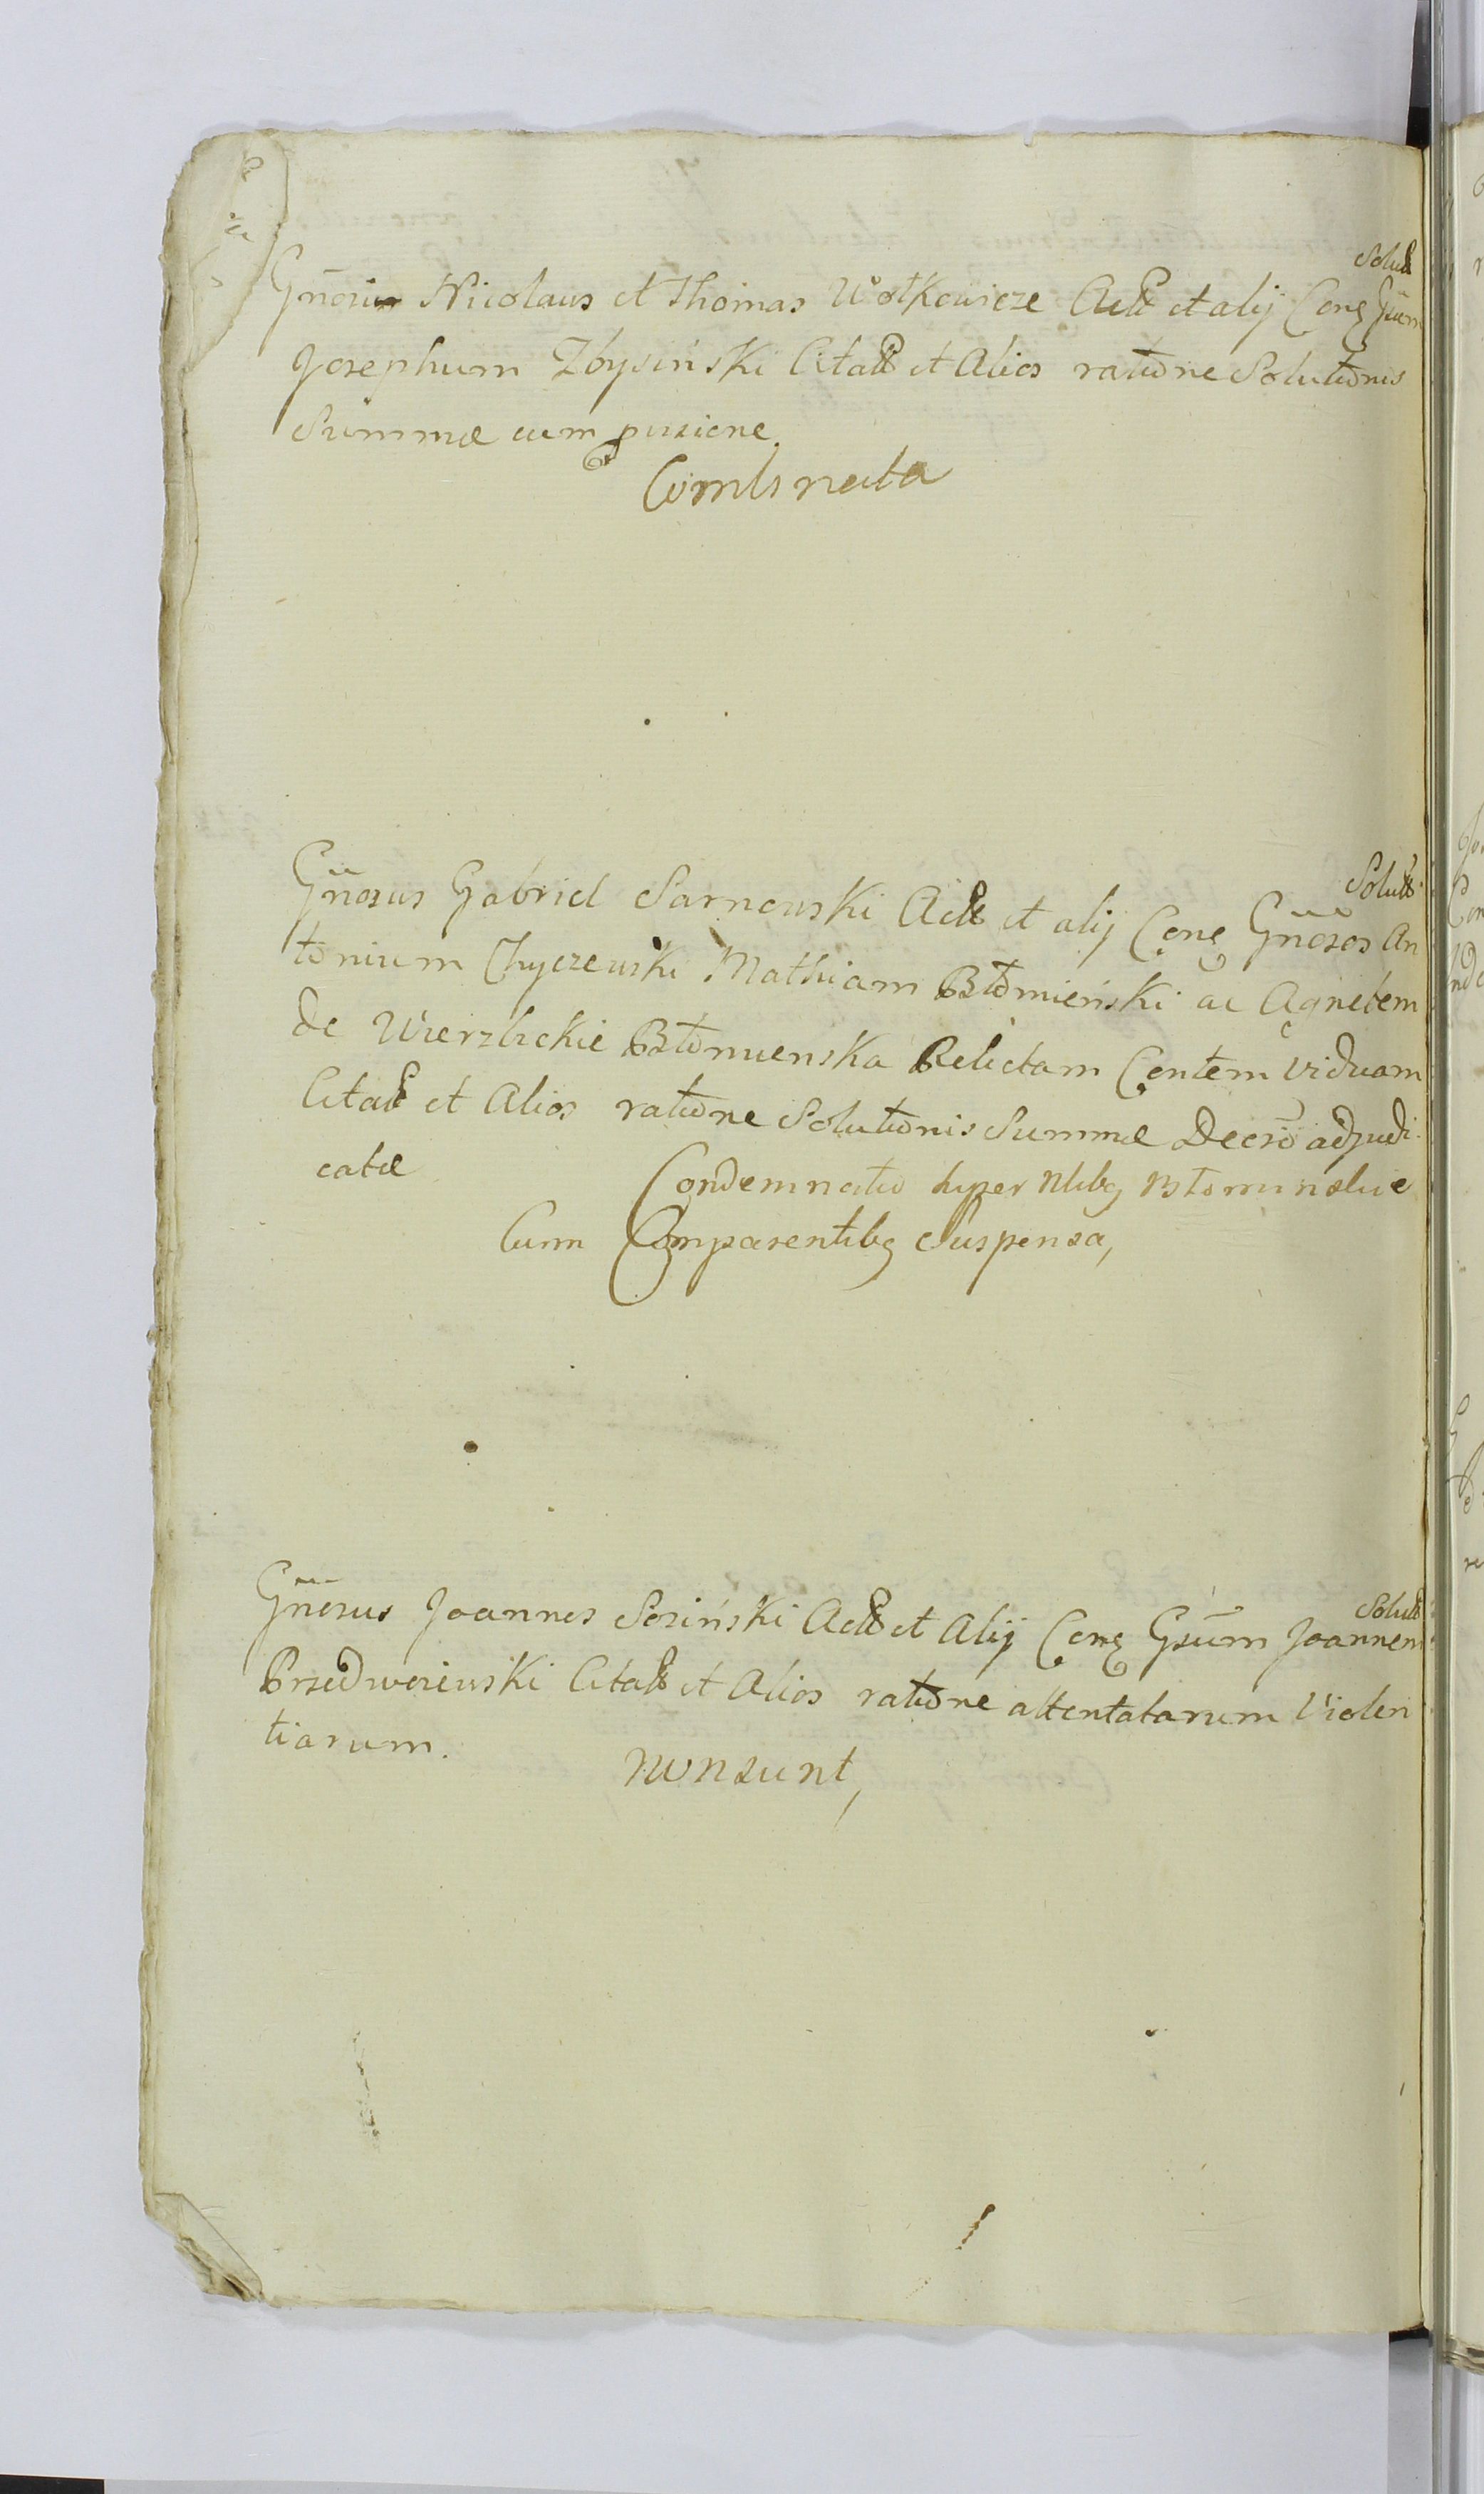 Solut
Gn̄osi Nicolaus et Thomas Wołkowicze Act et alij Conq Gsum
Josephum Zbysiński Citat et Alios ratione Solutionis
Summæ cum pusione.
Combinata
Solut
Gn̄osus Gabriel Sarnowski Act et alij Conq Gn̄osos An
tonium Chyczewski Mathiam Błomieński ac Agnetem
de Wierzbickie Błomienska Relictam Centem Viduam
Citat et Alios ratione Solutionis Summæ Decro adjudi
catæ
Condemnatio super Nlibq
Cum Comparentibq Suspensa,
Solut
Gn̄osus Joannes Sosiński Act et Alij Conq Gsum Joannem
Przedworzewski Citat et Alios ratione attentatarum Violen
tiarum.
non sunt,